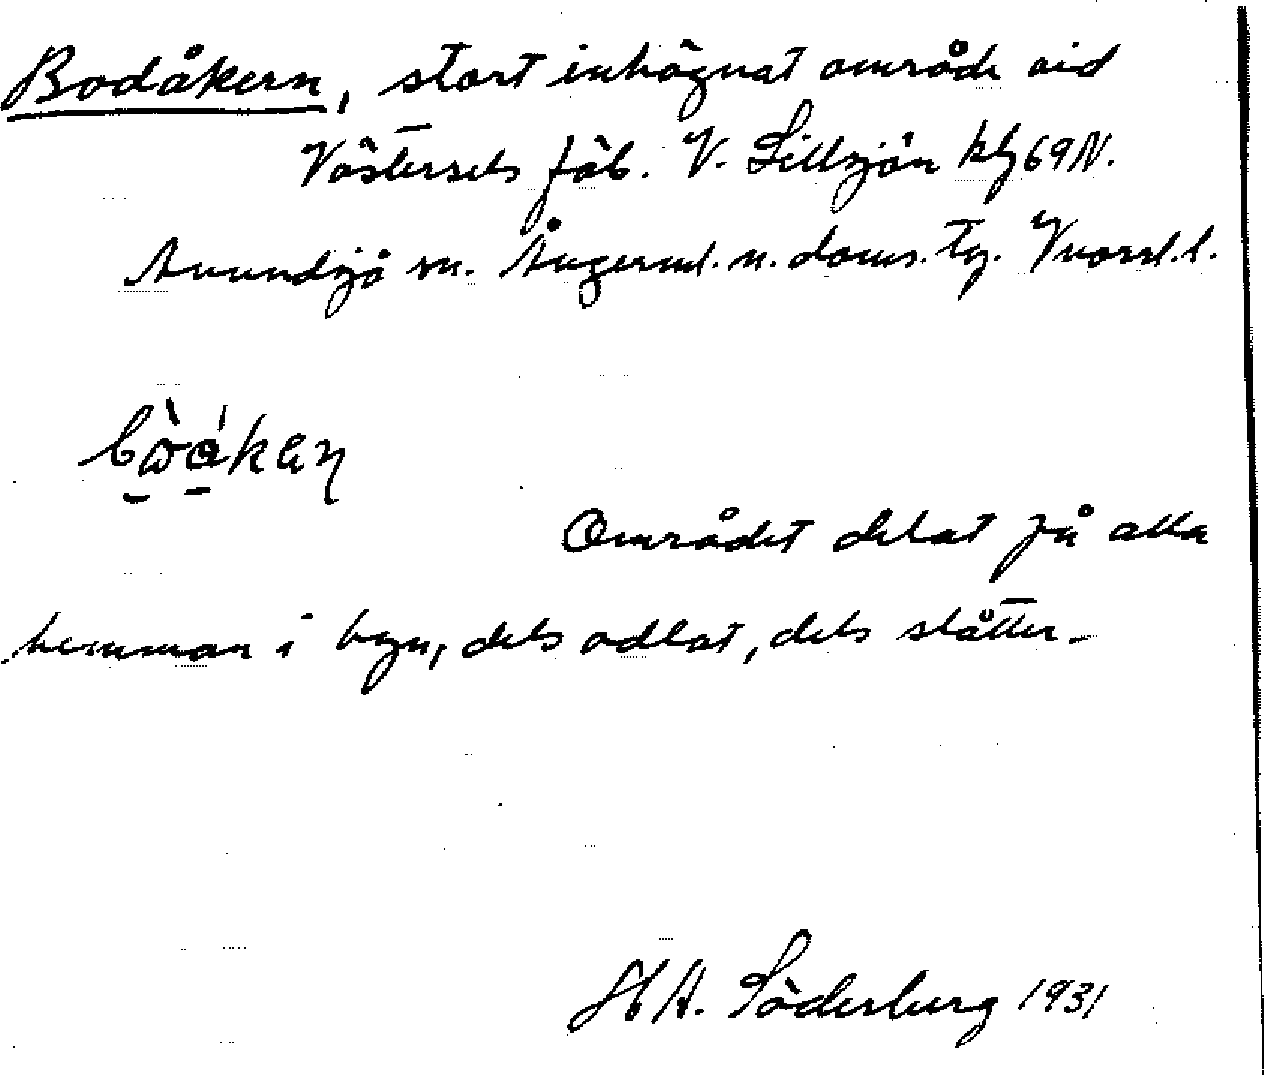 Bodåkern, stort inhägnat område vid
Västersels fäb. V. Sillsjön kbl 69 N.
Anundsjö sn. Ångerml. n. doms. tg. Vnorrl. l.
Området delat på alla
hemman i byn, dels odlat, dels slåtter
H A. Söderberg 1931